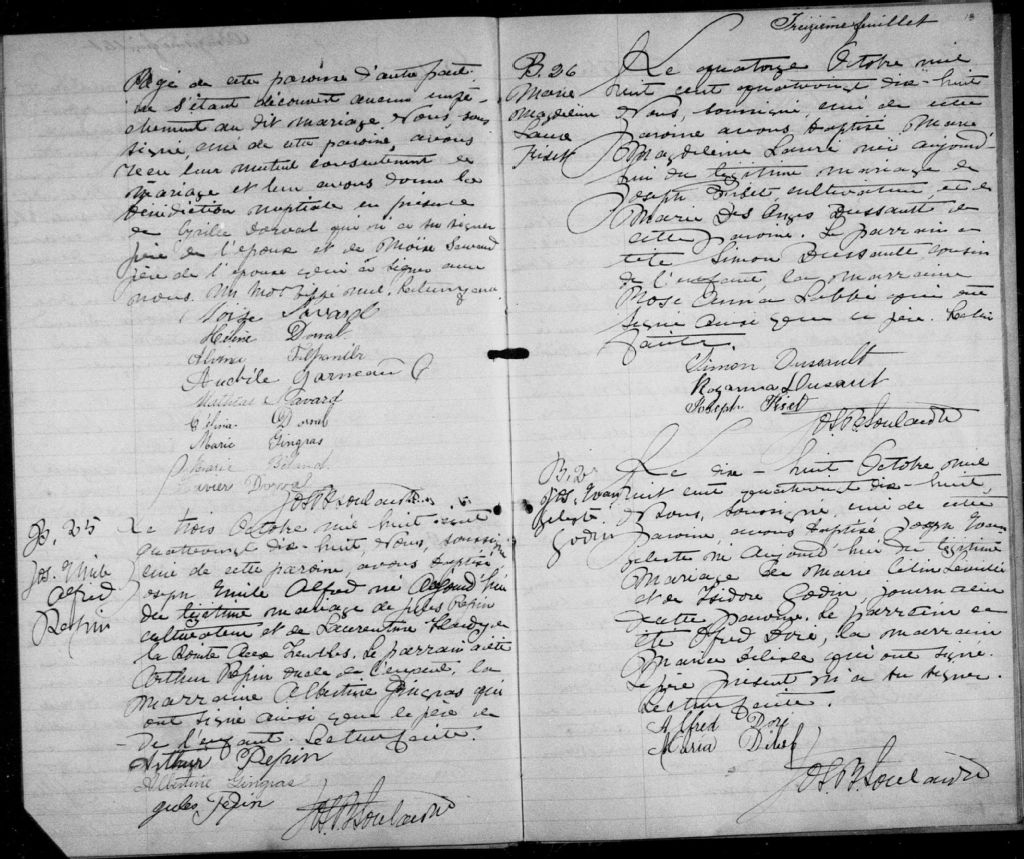 âgé de cette paroisse d'autre part
ne s'étant découvert aucun empê-
chement au dit mariage Nous, sous
signé, curé de cette paroisse, avons
reçu leur mutuel consentement de
mariage et leur avons donné la
bénédiction nuptiale en présence
de Cyrille Dorval qui n'a su signer
père de l'époux et de Moïse Savard
père de l'épouse qui a signé avec
nous.
Moïse Savard
Hélène Dorval
Alvine
Garneau
Savard
Célina Dorval
Marie Gingras
Marie Béland
Xavier Dorval
B. 25
Jos. Emile
Alfred
Pepin
Le trois Octobre mil huit cent
quatrevingt dix-huit, Nous, soussigné
curé de cette paroisse, avons baptisé
Joseph Emile Alfred né aujourd'hui
du légitime mariage de Jules Pepin
cultivateur et de Laurentine Hardy de
la Pointe Aux Trembles. Le parrain a été
Arthur Pepin oncle de l'enfant, la
marraine Albertine Gingras qui
ont signé ainsi que le père de
de l'enfant. Lecture faite.
Arthur Pepin
Albertine Gingras
Jules Pepin
Treizième feuillet
B. 26
Marie
Magdeleine
Laura
Fiset
Le quatorze Octobre mil
huit cent quatrevingt dix-huit
Nous, soussigné, curé de cette
paroisse avons baptisé Marie,
Magdeleine Laura née aujourd'-
hui du légitime mariage de
Joseph Fiset cultivateur et de
Marie Des Anges Dussault de
cette paroisse. Le parrain a
été Simon Dussault cousin
de l'enfant, la marraine
Rose Anna Labbé qui ont
signé ainsi que le père. Lecture
faite.
Simon Dussault
Rozanna Dusaut
Joseph Fiset
B. 2
Jos. Evan
geliste
Godin
Le dix-huit Octobre mil
huit cent quatrevingt dix-huit,
Nous, soussigné, curé de cette
paroisse, avons baptisé Joseph Evan
geliste né aujourd'hui du légitime
mariage de Marie
et de Isidore Godin, journalier
de cette paroisse. Le parrain a
été Alfred Doré, la marraine
Maria Delisle qui ont signé.
Le père présent n'a su signer.
Lecture faite.
Alfred Doré
Maria